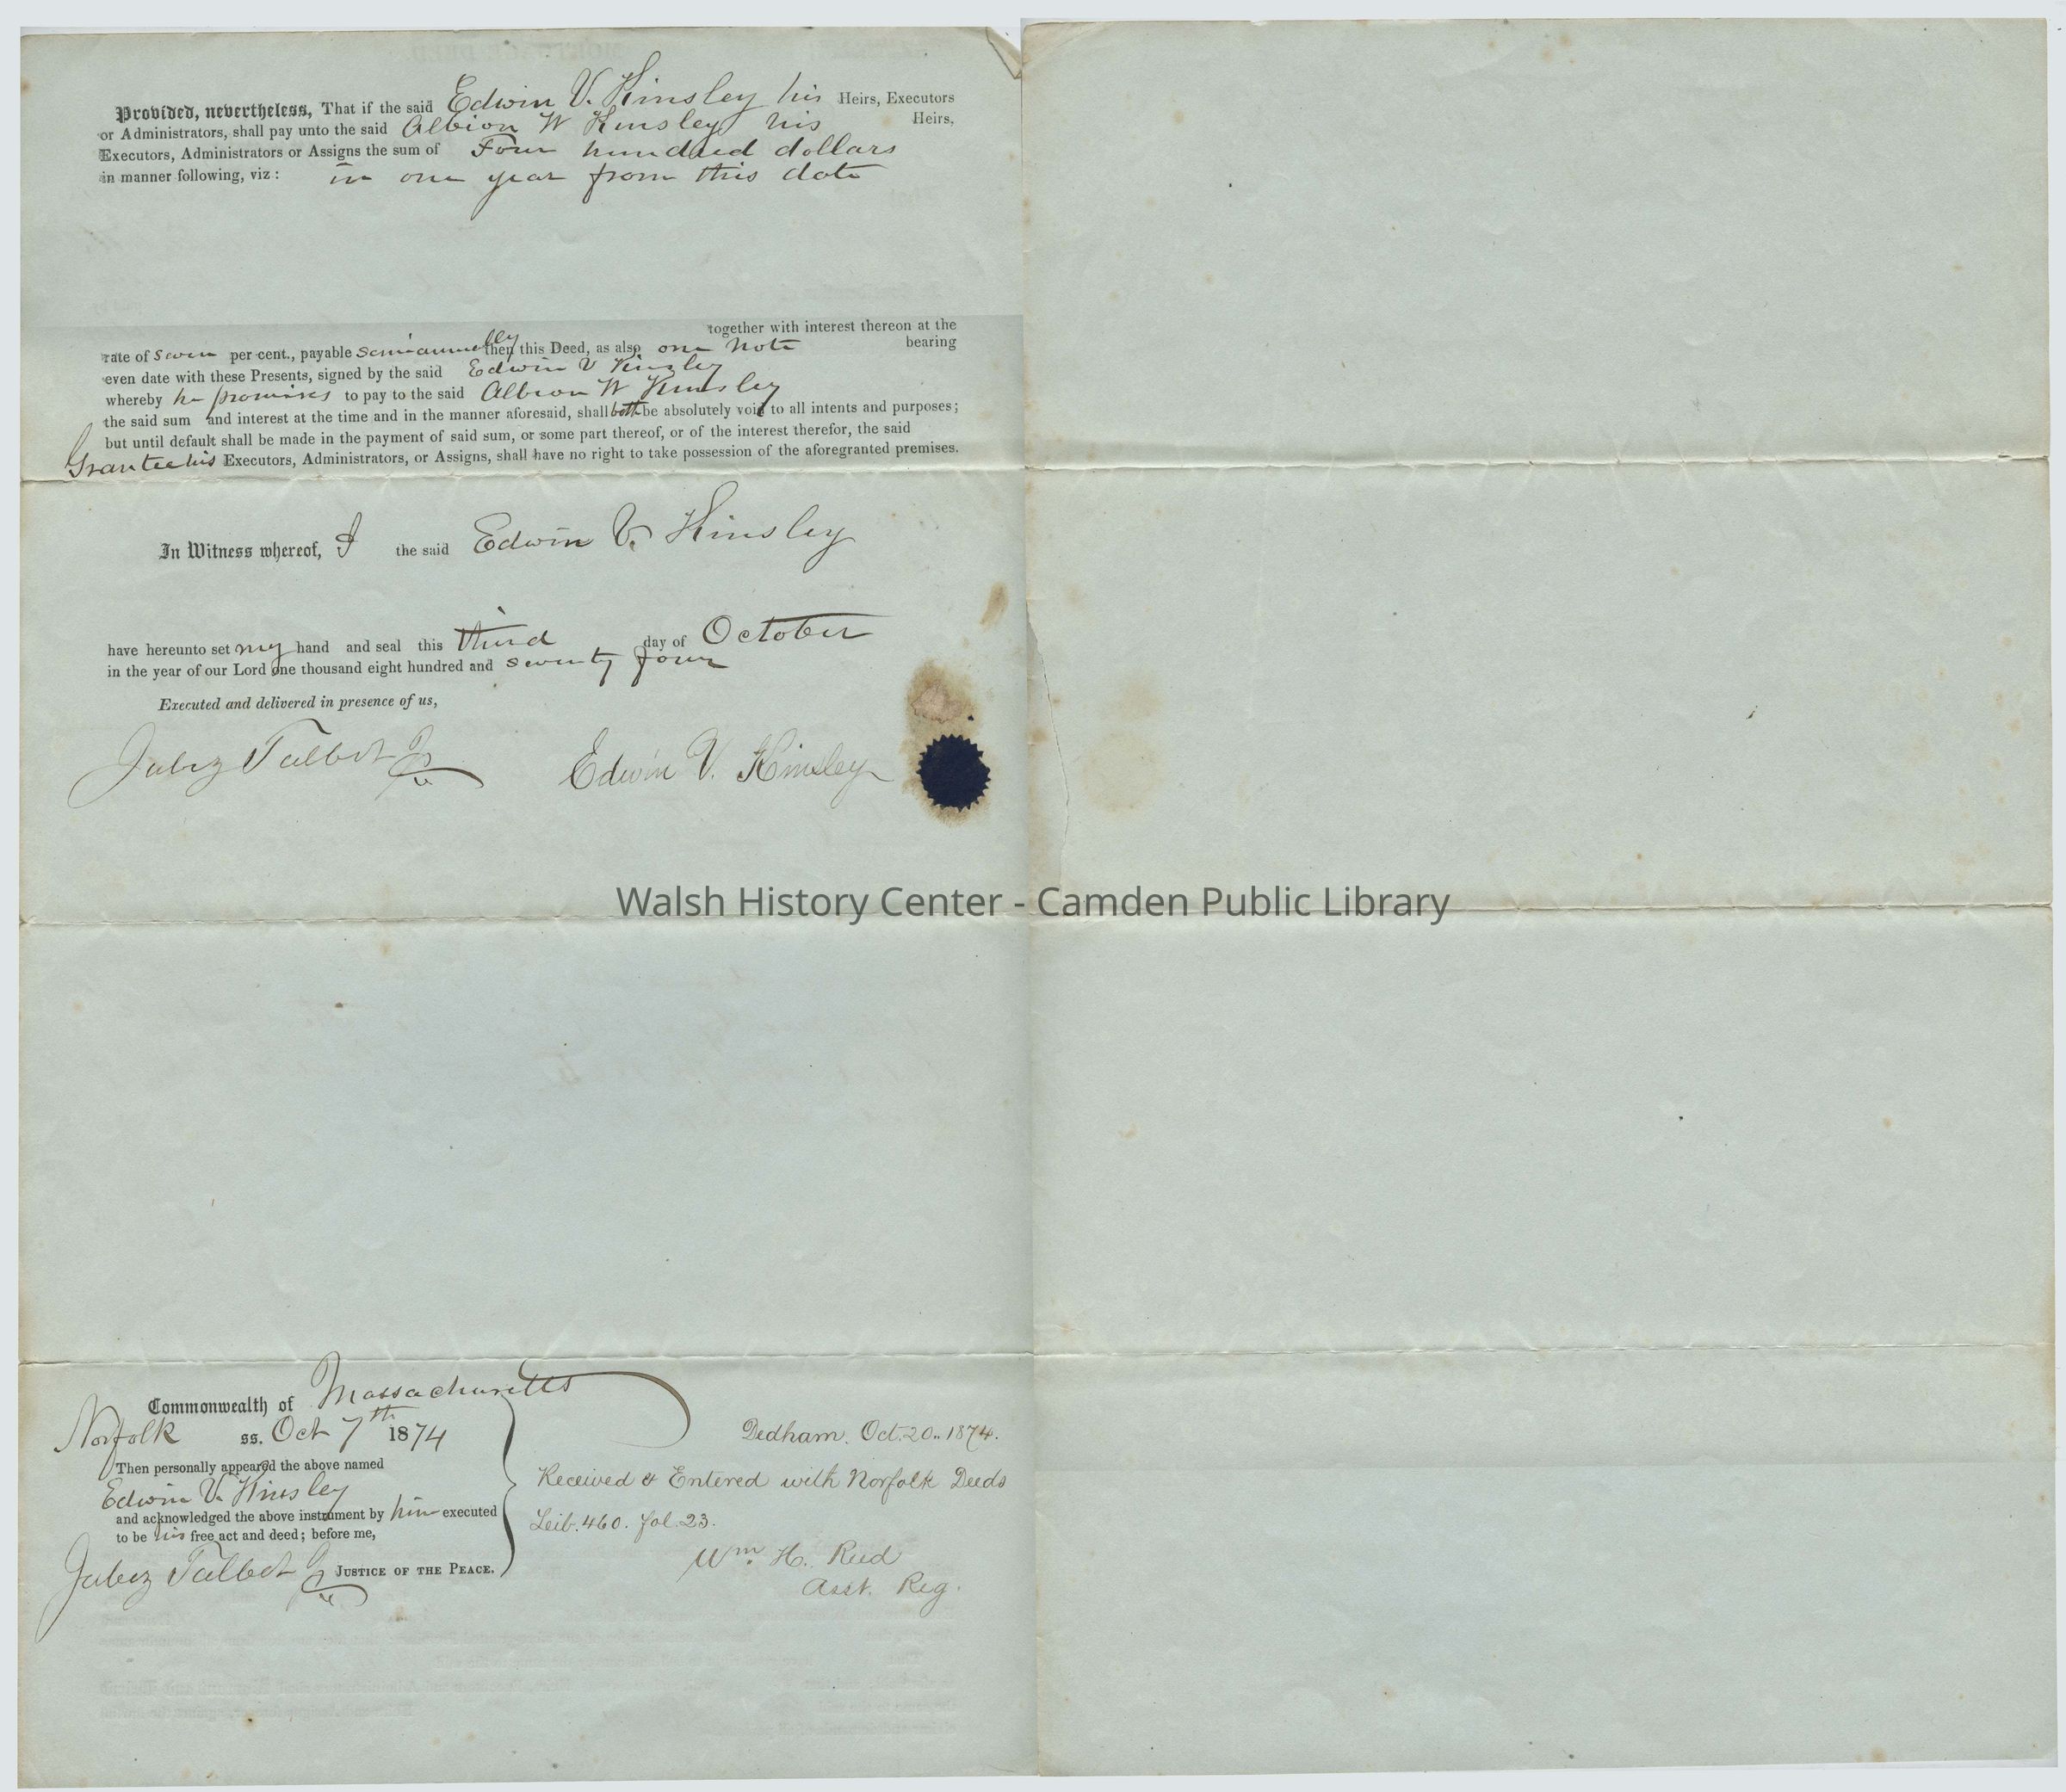 Provided, nevertheless, That if the said Edwin V. Kinsley his Heirs, Executors
or Administrators, shall pay unto the said Albion W Kinsley his Heirs,
Executors, Administrators or Assigns the sum of Four hundred dollars
in manner following, viz : in one year from this date
together with interest thereon at the
rate of Seven per cent., payable Semiannually then this Deed, as also one Note bearing
even date with these Presents, signed by the said Edwin V Kinsley
whereby he promises to pay to the said Albion W Kinsley
the said sum and interest at the time and in the manner aforesaid, shall both be absolutely void to all intents and purposes;
but until default shall be made in the payment of said sum, or some part thereof, or of the interest therefor, the said
Grantee his Executors, Administrators, or Assigns, shall have no right to take possession of the aforegranted premises.
In Witness whereof, I the said Edwin V. Kinsley
have hereunto set my hand and seal this third day of October
in the year of our Lord one thousand eight hundred and seventy four
Executed and delivered in presence of us,
Jabez Talbot Jr
Edwin V. Kinsley
Walsh History Center - Camden Public Library
Commonwealth of Massachusetts
Norfolk ss. Oct 7th 1874
Then personally appeared the above named
Edwin V. Kinsley
and acknowledged the above instrument by him executed
to be his free act and deed; before me,
Jabez Talbot Jr JUSTICE OF THE PEACE.
Dedham. Oct. 20. 1874.
Received & Entered with Norfolk Deeds
Leib. 460. fol. 23.
Wm. H. Reed
Asst. Reg.